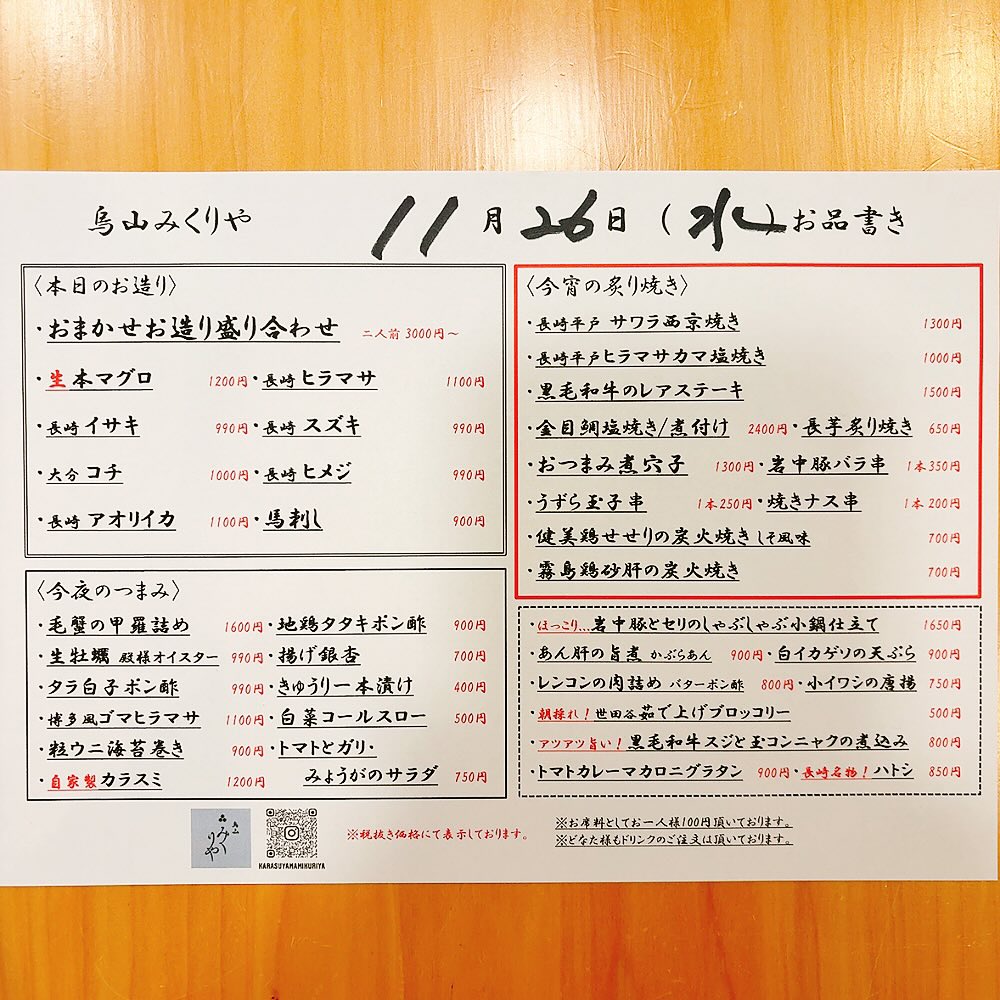 烏山みくりや 11月26日(水)お品書き
〈本日のお造り〉
・おまかせお造り盛り合わせ 二人前 3000円～
・生本マグロ 1200円・長崎 ヒラマサ 1100円
・長崎 イサキ 990円・長崎 スズキ 990円
・大分 コチ 1000円・長崎 ヒメジ 990円
・長崎 アオリイカ 1100円・馬刺し 900円
〈今夜のつまみ〉
・毛蟹の甲羅詰め 1600円・地鶏タタキポン酢 900円
・生牡蠣 殿様オイスター 990円・揚げ銀杏 700円
・タラ白子ポン酢 990円・きゅうり一本漬け 400円
・博多風ゴマヒラマサ 1100円・白菜コールスロー 500円
・粒ウニ海苔巻き 900円・トマトとガリ・
・自家製カラスミ 1200円 みょうがのサラダ 750円
〈今宵の炙り焼き〉
・長崎平戸 サワラ西京焼き 1300円
・長崎平戸ヒラマサカマ塩焼き 1000円
・黒毛和牛のレアステーキ 1500円
・金目鯛塩焼き/煮付け 2400円・長芋炙り焼き 650円
・おつまみ煮穴子 1300円・岩中豚バラ串 1本350円
・うずら玉子串 1本250円・焼きナス串 1本200円
・健美鶏せせりの炭火焼き しそ風味 700円
・霧島鶏砂肝の炭火焼き 700円
・ほっこり...岩中豚とセリのしゃぶしゃぶ小鍋仕立て 1650円
・あん肝の旨煮 かぶらあん 900円・白イカゲソの天ぷら 900円
・レンコンの肉詰め バターポン酢 800円・小イワシの唐揚 750円
・朝採れ！世田谷茹で上げブロッコリー 500円
・アツアツ旨い！黒毛和牛スジと玉コンニャクの煮込み 800円
・トマトカレーマカロニグラタン 900円・長崎名物！ハトシ 850円
烏山みくりや
KARASUYAMAMIKURIYA
※税抜き価格にて表示しております。
※お席料としてお一人様100円頂いております。
※どなた様もドリンクのご注文は頂いております。